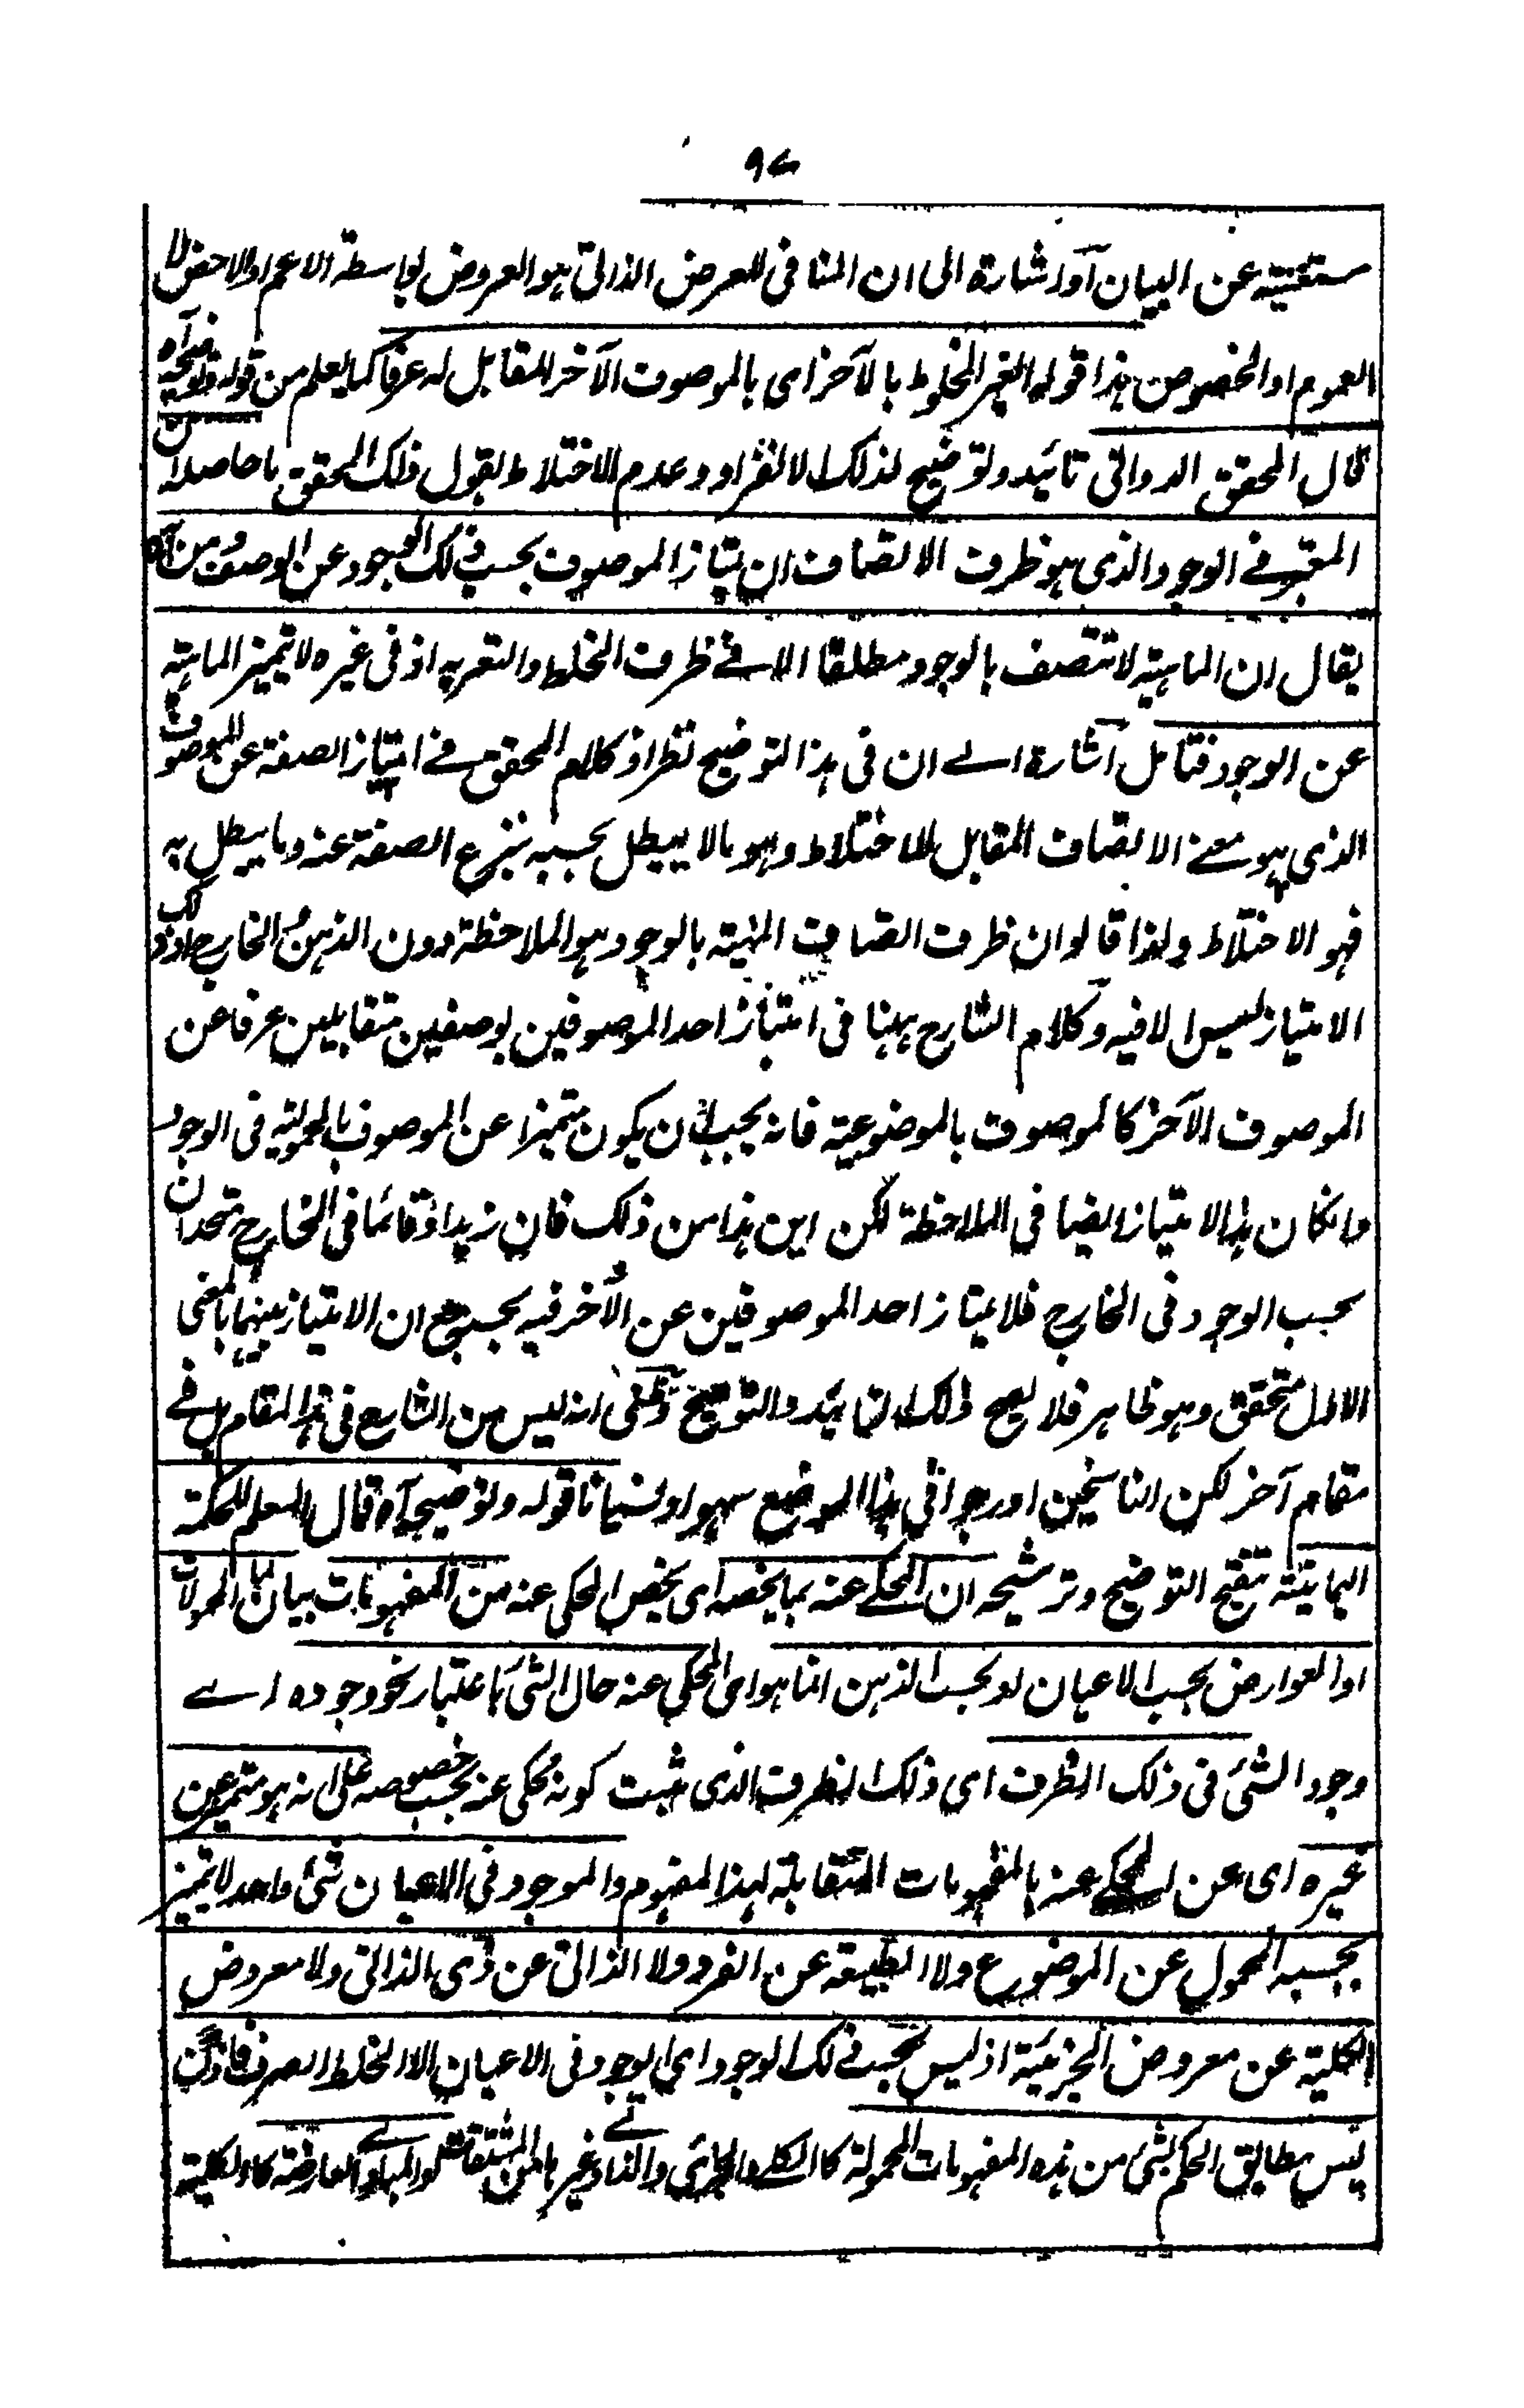 ٩٧
مستغنية عن البيان آو اشارة الى ان المنافى للعرض الذاتى هو العروض بواسطة الاعم او الاخص لا
العموم او الخصوص هذا قوله الغير المخلوط بالآخر اى بالموصوف الآخر المقابل له عرفا كما يعلم من قوله وتوضيحه آه
قال المحقق الدوانى تائيد وتوضيح لذلك الانفراد وعدم الاختلاط بقول ذلك المحقق ما حاصله ان
المعتبر فى الوجود الذى هو ظرف الاتصاف ان يمتاز الموصوف بحسب ذلك الوجود عن الوصف ومن آه
يقال ان الماهية لا تتصف بالوجود مطلقا الا فى ظرف الخلط والتعرية اذ فى غيره لا تميز الماهية
عن الوجود فتامل اشارة الى ان فى هذا التوضيح نظرا ذ كلام المحقق فى امتياز الصفة عن الموصوف
الذى هو معنى الاتصاف المقابل للاختلاط وهو ما لا يبطل بحسبه ننزع الصفة عنه وما يبطل به
فهو الاختلاط ولذا قالوا ان ظرف اتصاف المهية بالوجود هو الملاحظة دون الذهن والخارج اذ ذلك
الامتياز ليس الا فيه وكلام الشارح ههنا فى امتياز احد الموصوفين بوصفين متقابلين عرفا عن
الموصوف الآخر كالموصوف بالموضوعية فانه يجب ان يكون متميزا عن الموصوف بالمحمولية فى الوجود
وانكان هذا الامتياز ايضا فى الملاحظة لكن اين هذا من ذلك فان زيدا وقائما فى الخارج متحدان
بحسب الوجود فى الخارج فلا يمتاز احد الموصوفين عن الآخر فيه بحسبه مع ان الامتياز بينهما بالمعنى
الاول متحقق وهو ظاهر فلا يصح ذلك التائيد والتوضيح وظنى انه ليس من الشارع فى هذا المقام بل فى
مقام آخر لكن الناسخين اورجوا فى هذا الموضع سهوا ونسيانا قوله وتوضيحه آه قال المعلم للحكمة
اليمانية تنقيح التوضيح وترشيحه ان المحكى عنه بما يخصه اى يخص المحكى عنه من المفهومات بيان لما المحمولات
او العوارض بحسب الاعيان او بحسب الذهن انما هو اى المحكى عنه حال الشئ باعتبار نحو وجوده اے
وجود الشئ فى ذلك الظرف اى ذلك الظرف الذى ثبت كونه محكى عنه بحسب خصوصه على انه هو متميز عن
غيره اى عن المحكى عنه بالمفهومات المتقابلة لهذا المفهوم والموجود فى الاعيان شئ واحد لا يتميز
بحسبه المحمول عن الموضوع ولا الطبيعة عن الفرد ولا الذاتى عن ذى الذاتى ولا معروض
الكلية عن معروض الجزئية اذ ليس بحسب ذلك الوجود اى الوجود فى الاعيان الا الخلط الصرف فاذن
ليس مطابق الحكم بشئ من هذه المفهومات المحمولة كالكلى والجزئى والذاتى وغيرها من المشتقات والمبادى العارضة كالكلية